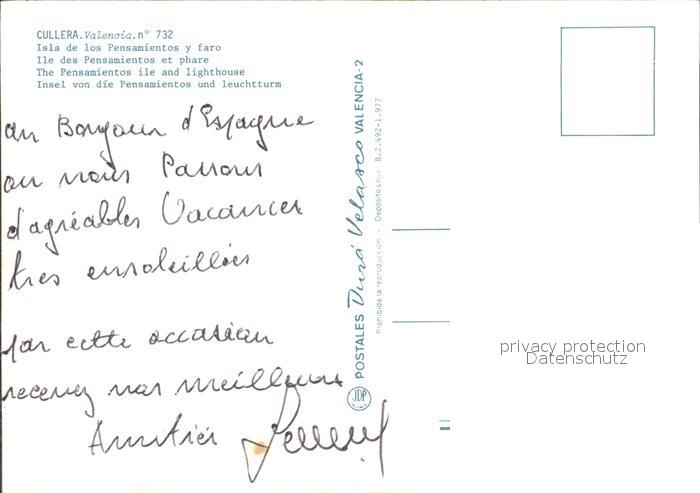 CULLERA.Valencia.n° 732
Isla de los Pensamientos y faro
Ile des Pensamientos et phare
The Pensamientos ile and lighthouse
Insel von die Pensamientos und leuchtturm
un Bonjour d'Espagne
ou nous Passons
d'agréables Vacances
tres ensoleillées
par cette occasion
recevez nos meilleures
Amitiés
POSTALES Durá Velasco VALENCIA-2
Prohibida la reproducción - Depósito Legal B.2.492-1.977
JDP
privacy protection
Datenschutz